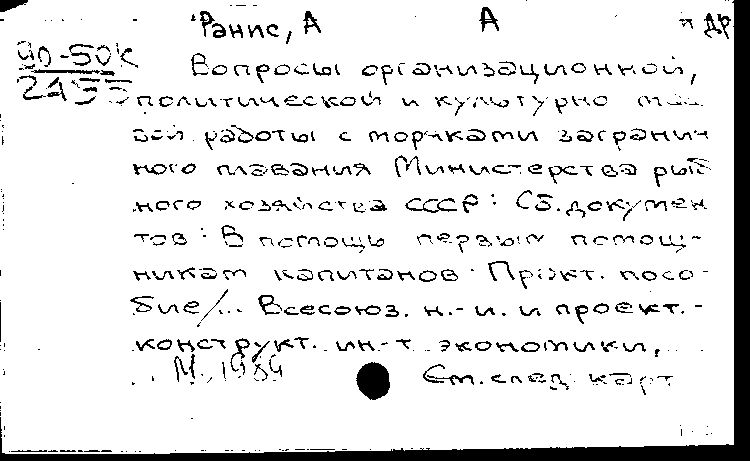 Ранис, А А и др
90-50к
2455
Вопросы организационной,
политической и культурно мас
вой работы с моряками загранич
ного плавания Министерства рыб
ного хозяйства СССР: Сб. докумен
тов: В помощь первым помощ-
никам капитанов: Практ. посо-
бие/... Всесоюз. н.-и. и проект.-
конструкт. ин-т экономики,
... М., 1989
См. след. карт